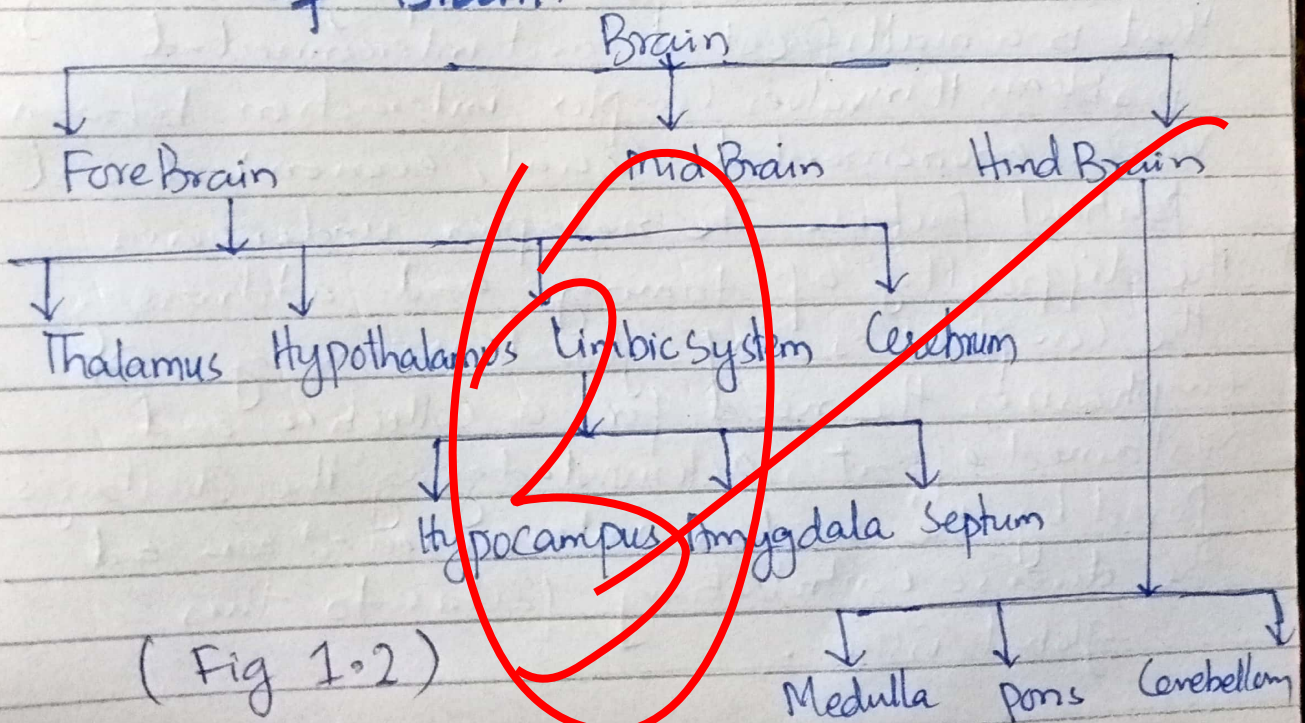 Brain
ForeBrain Mid Brain Hind Brain
Thalamus Hypothalamus Limbic system Cerebrum
Hypocampus Amygdala Septum
(Fig 1.2)
Medulla pons Cerebellum
3